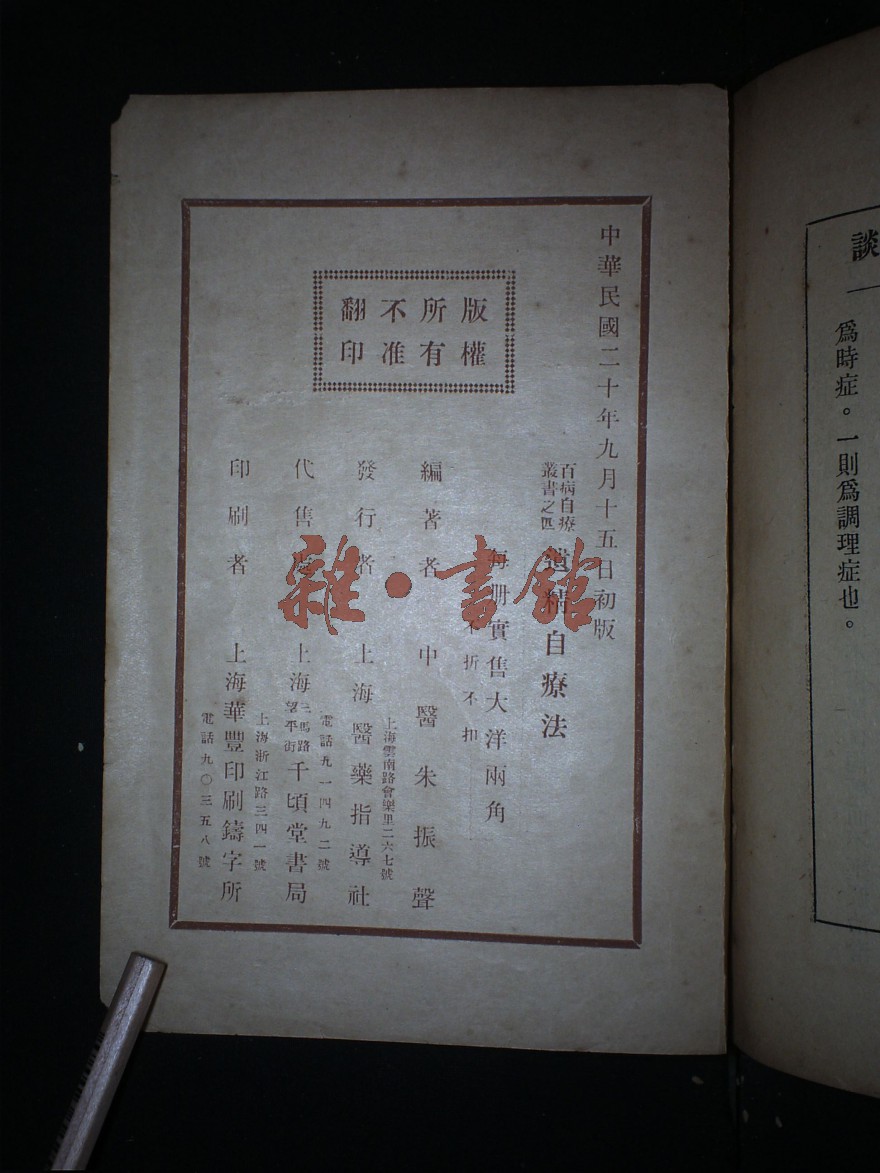 談
爲時症。一則爲調理症也。
中華民國二十年九月十五日初版
版權
所有
不准
翻印
百病自療
叢書之四
遺精自療法
每册實售大洋兩角
不折不扣
編著者 中醫朱振聲
上海雲南路會樂里二六七號
發行者 上海醫藥指導社
電話九一四九二號
代售處 上海三馬路望平街千頃堂書局
上海浙江路三四一號
印刷者 上海華豐印刷鑄字所
電話九〇三五八號
雜·書館